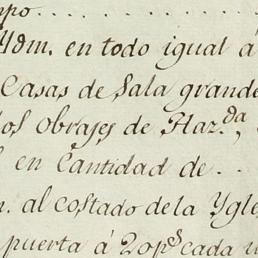 mpo. . . . . . . . . . . . .
Ydm. en todo igual á
Casas de Sala grande
los obrajes de Haz.da,
en Cantidad de . .
al costado de la Ygle
puerta á 20 p.s cada u